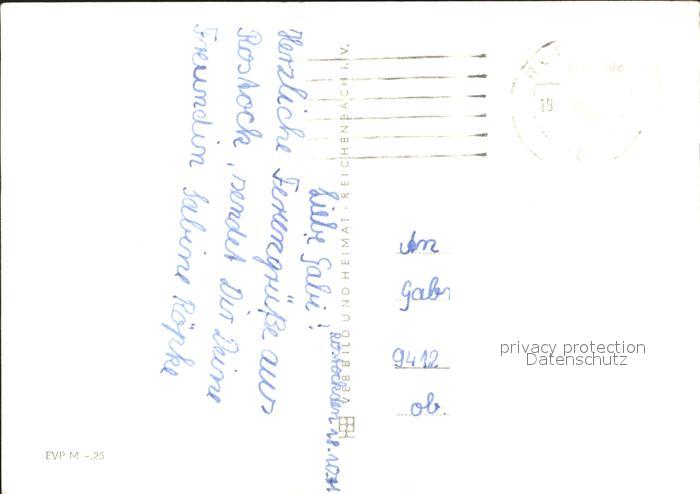 Rostock den
Liebe Gabi!
Herzliche Feriengrüße aus
Rostock, sendet Dir Deine
Freundin Sabine Röpke
VEB BILD UND HEIMAT · REICHENBACH i. V.
19.
An
Gabi
9412
ob.
privacy protection
Datenschutz
EVP M -.25